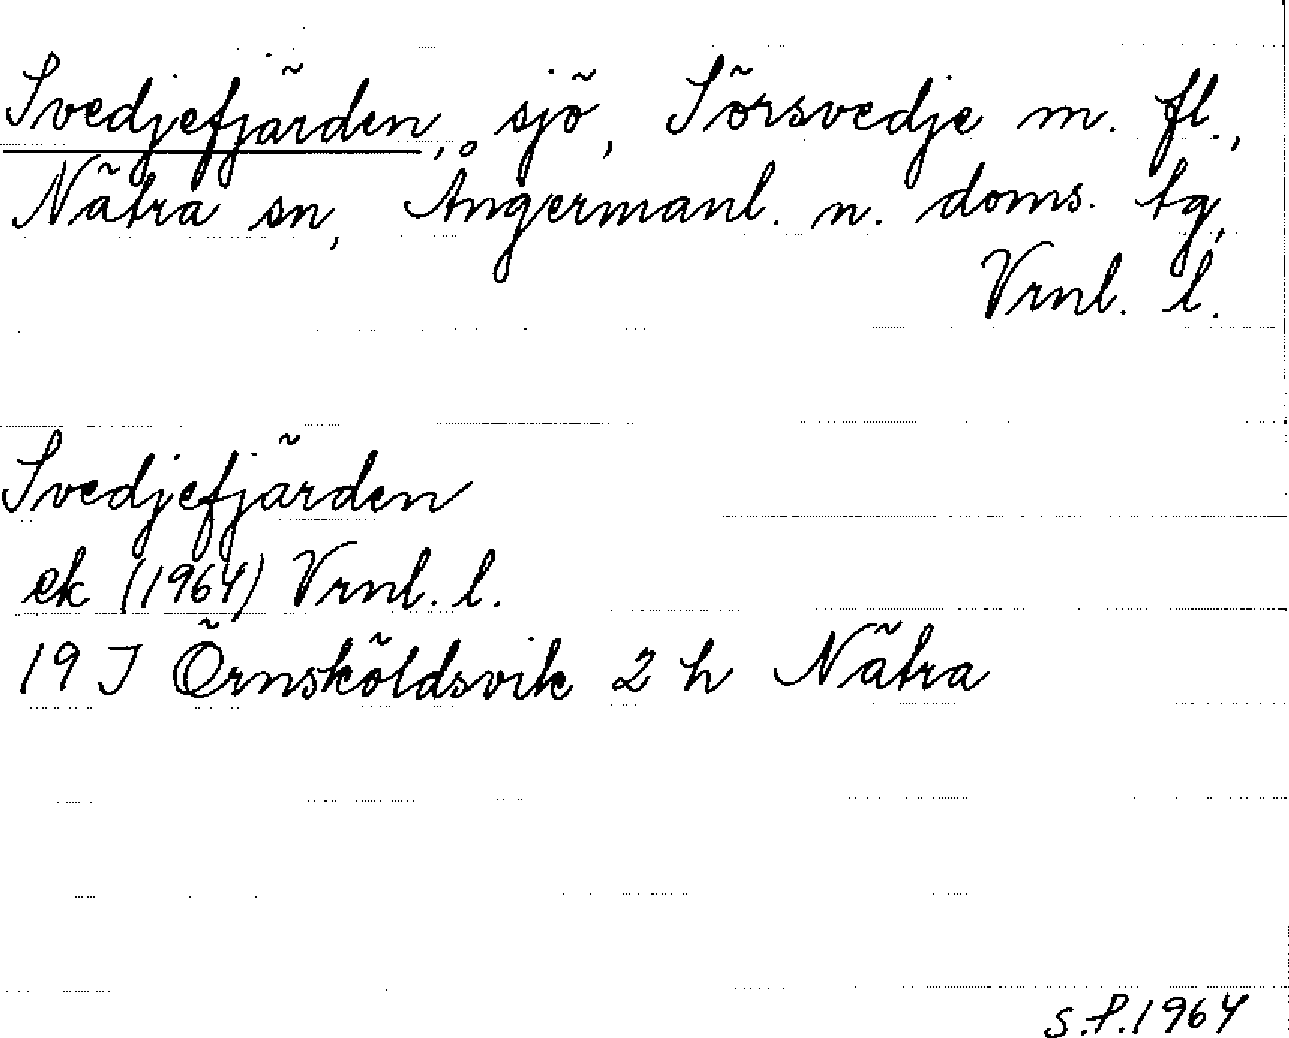 Svedjefjärden, sjö, Sörsvedje m. fl.,
Nätra sn, Ångermanl. n. doms. tg,
Vrnl. l.
Svedjefjärden
ek (1964) Vrnl. l.
19 J Örnsköldsvik 2 h Nätra
S.P. 1964